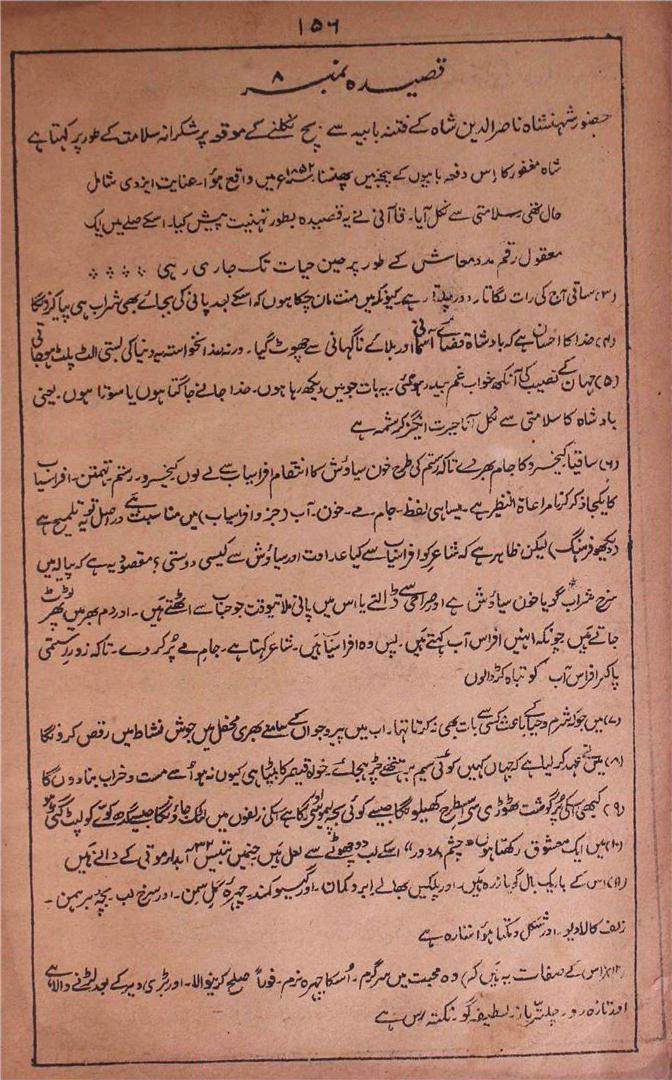 ۱۵۶
قصیدہ نمبر ۸
حضور شہنشاہ ناصرالدین شاہ کے فتنہ بابیہ سے بچ نکلنے کے موقعہ پر شکرانہ سلامت کے طور پر کہتا ہے
شاہ مغفور کا اس دفعہ بابیوں کے پنجہ میں پھنسنا ۱۸۵۲ء میں واقع ہوا۔ عنایت ایزدی شامل
حال تھی سلامتی سے نکل آیا۔ قاآنی نے یہ قصیدہ بطور تہنیت پیش کیا۔ اسکے صلے میں ایک
معقول رقم مدد معاش کے طور پر حین حیات تک جاری رہی
(۳) ساقی آج کی رات لگاتار دور چلتا رہے کیونکہ میں منت مان چکا ہوں کہ اسکے بعد پانی کی بجائے بھی شراب ہی پیا کرونگا
(۴) خدا کا احسان ہے کہ بادشاہ قضائے آسمانی اور بلائے ناگہانی سے چھوٹ گیا۔ ورنہ خدانخواستہ یہ دنیا کی بستی الٹ پلٹ ہو جاتی
(۵) جہان کے نصیب کی آنکھ خواب غم بیدار ہو گئی۔ یہ بات جو میں دیکھ رہا ہوں۔ خدا جانے جاگتا ہوں یا سوتا ہوں۔ یعنی
بادشاہ کا سلامتی سے نکل آنا حیرت انگیز کرشمہ ہے
(۶) ساقیا کیخسرو کا جام بھر دے تاکہ رستم کی طرح خون سیاؤش کا انتقام افراسیاب سے لے لوں۔ کیخسرو۔ رستم۔ تہمتن۔ افراسیاب
کا یکجا ذکر کرنا مراعاۃ النظیر ہے۔ ایسا ہی لفظ۔ جام۔ مے۔ خون۔ آب (جزو افراسیاب) میں مناسبت ہے دراصل تو یہ تلمیح ہے
(دیکھو فرہنگ) لیکن ظاہر ہے کہ شاعر کو افراسیاب سے کیا عداوت اور سیاؤش سے کیسی دوستی؟ مقصود یہ ہے کہ پیالہ میں
سرخ شراب گویا خون سیاؤش ہے اور صراحی سے ڈالتے یا اس میں پانی ملاتیوقت جو حباب سے اٹھتے ہیں۔ اور دم بھر میں پھر ٹوٹ
جاتے ہیں چونکہ انہیں افراس آب کہتے ہیں۔ پس وہ افراسیاب ہیں۔ شاعر کہتا ہے۔ جام مے پر کر دے۔ تاکہ زور رستمی
پاکر افراس آب کو تباہ کر ڈالوں
(۷) میں جو کہ شرم و حیا کے باعث کسی سے بات بھی نہ کرتا تھا۔ اب میں پیر و جوان کے سامنے بھری محفل میں جوش نشاط میں رقص کرونگا
(۸) میں نے عہد کر لیا ہے کہ جہاں کہیں کوئی سیم بر ہتھے چڑھ جائے۔ خواہ قیصر کا بیٹا ہی کیوں نہ ہو اسے مست و خراب بنا دوں گا
(۹) کبھی اسکی پُر گوشت ٹھوڑی سے اسطرح کھیلونگا جیسے کوئی بچہ لیموں کھیلتا ہے اسکی زلفوں میں لٹک جاؤنگا جیسے گدھ کوے کو لپٹ گئی ہو
(۱۰) میں ایک معشوق رکھتا ہوں "چشم بد دور" اسکے لب دو چھوٹے سے لعل ہیں جنمیں بتیس ۳۲ آبدار موتی کے دانے ہیں
(۱۱) اس کے باریک بال گویا زرہ ہیں۔ اور پلکیں بھالے ابرو کمان۔ اور گیسو کمند۔ چہرہ گل سمن۔ اور سرخ لب۔ بچہ برہمن۔
زلف کالا دیو۔ اور شکل دمکتا ہوا ستارہ ہے
(۱۲) (اس کے صفات یہ ہیں کہ) وہ محبت میں سرگرم۔ اسکا چہرہ نرم۔ فوراً صلح کرنیوالا۔ اور بڑی دیر کے بعد لڑنے والا ہے
اور تازہ رو۔ لطیفہ گو۔ نکتہ رس ہے